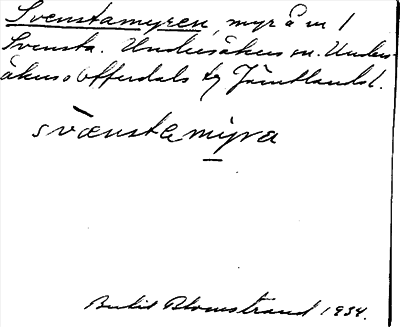 Svenstamyren, myr å m 1
Svensta. Undersåkers sn. Under-
såkers o Offerdals tg Jämtlands l.
svænstamyra
Blomstrand 1934.